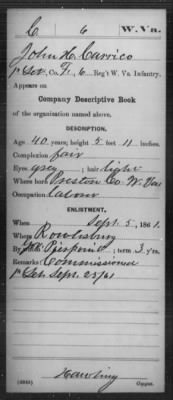 C | 6 | W. Va.
John H. Carrico
1st Sgt, Co. F, 6 Reg't W. Va. Infantry.
Appears on
Company Descriptive Book
of the organization named above.
DESCRIPTION.
Age 40 years; height 5 feet 11 inches.
Complexion fair
Eyes grey; hair light
Where born Preston Co. W. Va.
Occupation labour
ENLISTMENT.
When Sept. 5, 1861.
Where Rowlesburg
By whom Pierpoint; term 3 y'rs.
Remarks: Commissioned
1st Sgt Sept. 23/61